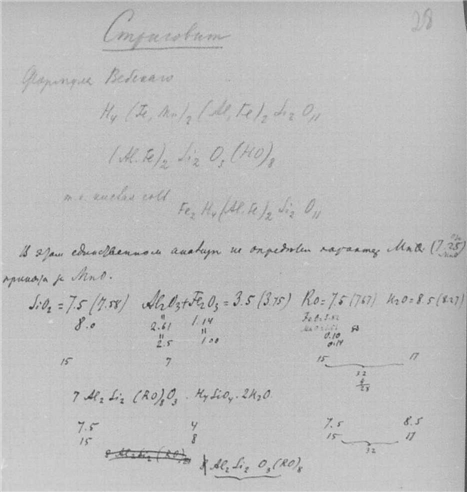 28
Стриговит
Формула Вебскаго
H4 (Fe, Mn)2 (Al, Fe)2 Si2 O11
(Al.Fe)2 Si2 O3 (HO)8
Fe2 H4 (Al.Fe)2 Si2 O11
В этом единственном анализе не определен характер MnO (7.25)
принят за MnO.
SiO2 = 7.5 (7.58) Al2O3 + Fe2O3 = 3.5 (3.75) RO = 7.5 (767) H2O = 8.5 (8.27)
8.0 2.61 1.14
2.5 1.00
0.10
0.14
15 7 15 17
32
7 Al2 Si2 (RO)8 O3 . H4SiO4 . 2H2O
7.5 4 7.5 8.5
15 8 15 17
32
8 Al2 Si2 O3 (RO)8